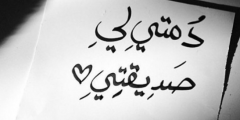 دُمتيِ لِيِ
صَدِيقَتِيِ♡